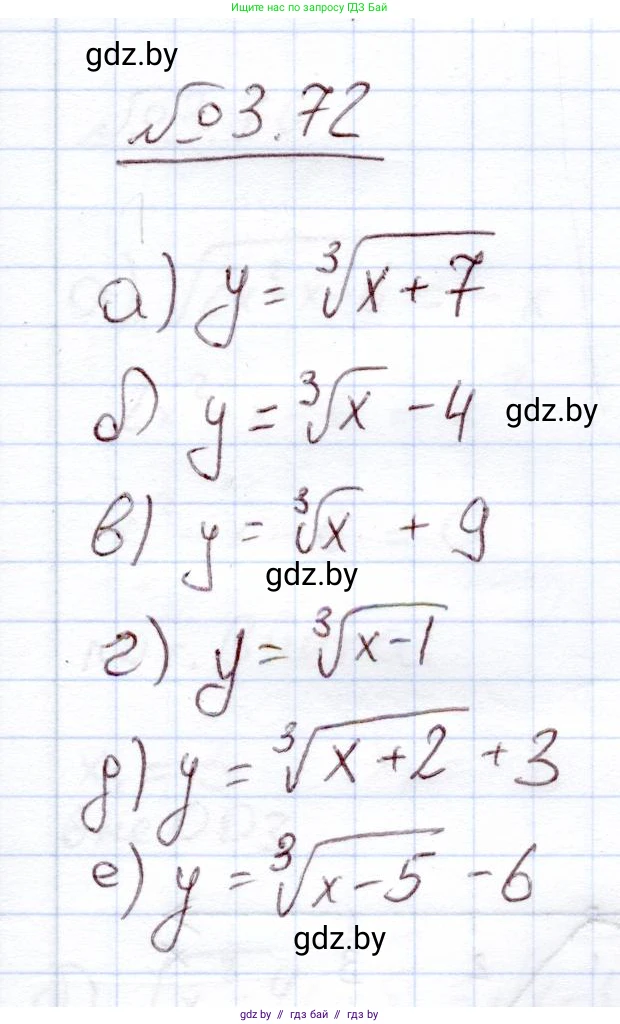 Ищите нас по запросу ГДЗ Бай
gdz.by
№ 3.72
а) y = ∛(x + 7)
б) y = ∛x - 4
gdz.by
в) y = ∛x + 9
gdz.by
г) y = ∛(x - 1)
д) y = ∛(x + 2) + 3
е) y = ∛(x - 5) - 6
gdz.by
gdz by // гдз бай // гдз by